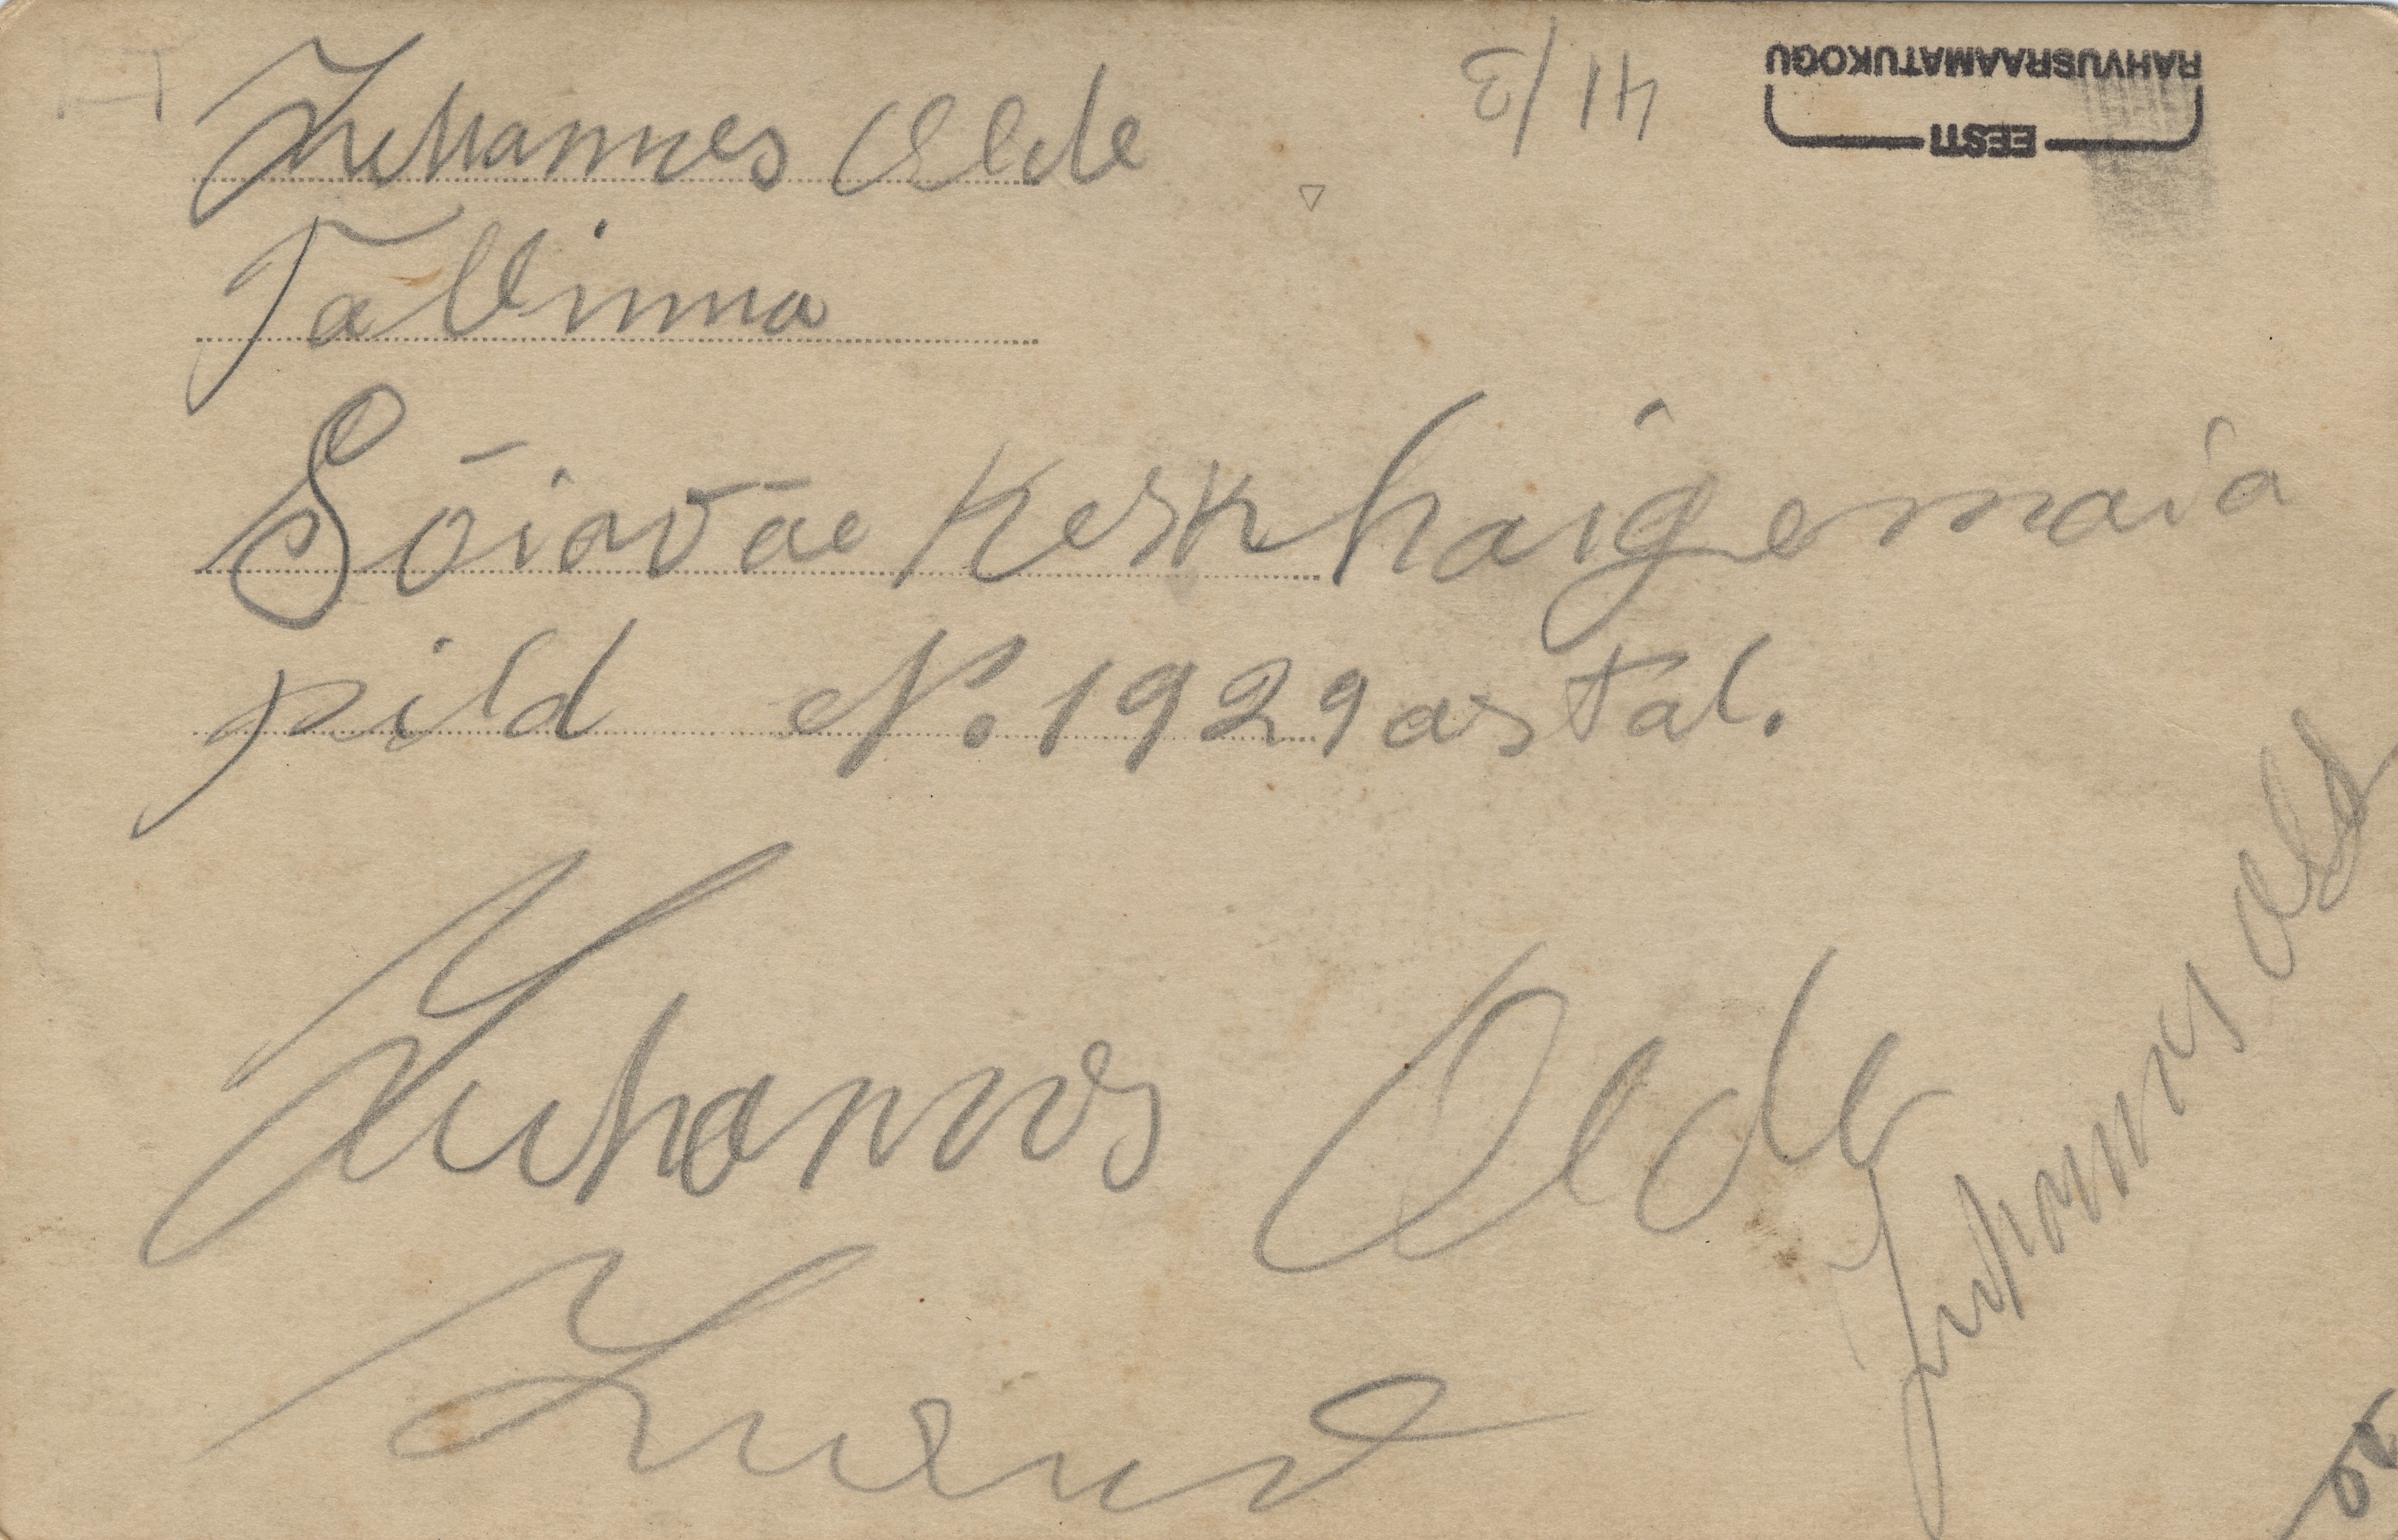 Juhannes Olde
Tallinna
Sõiavãe Kesk haigemaia
pild No. 1929 astal.
Juhannes Olde
Juhannes Old
41/3
EESTI
RAHVUSRAAMATUKOGU